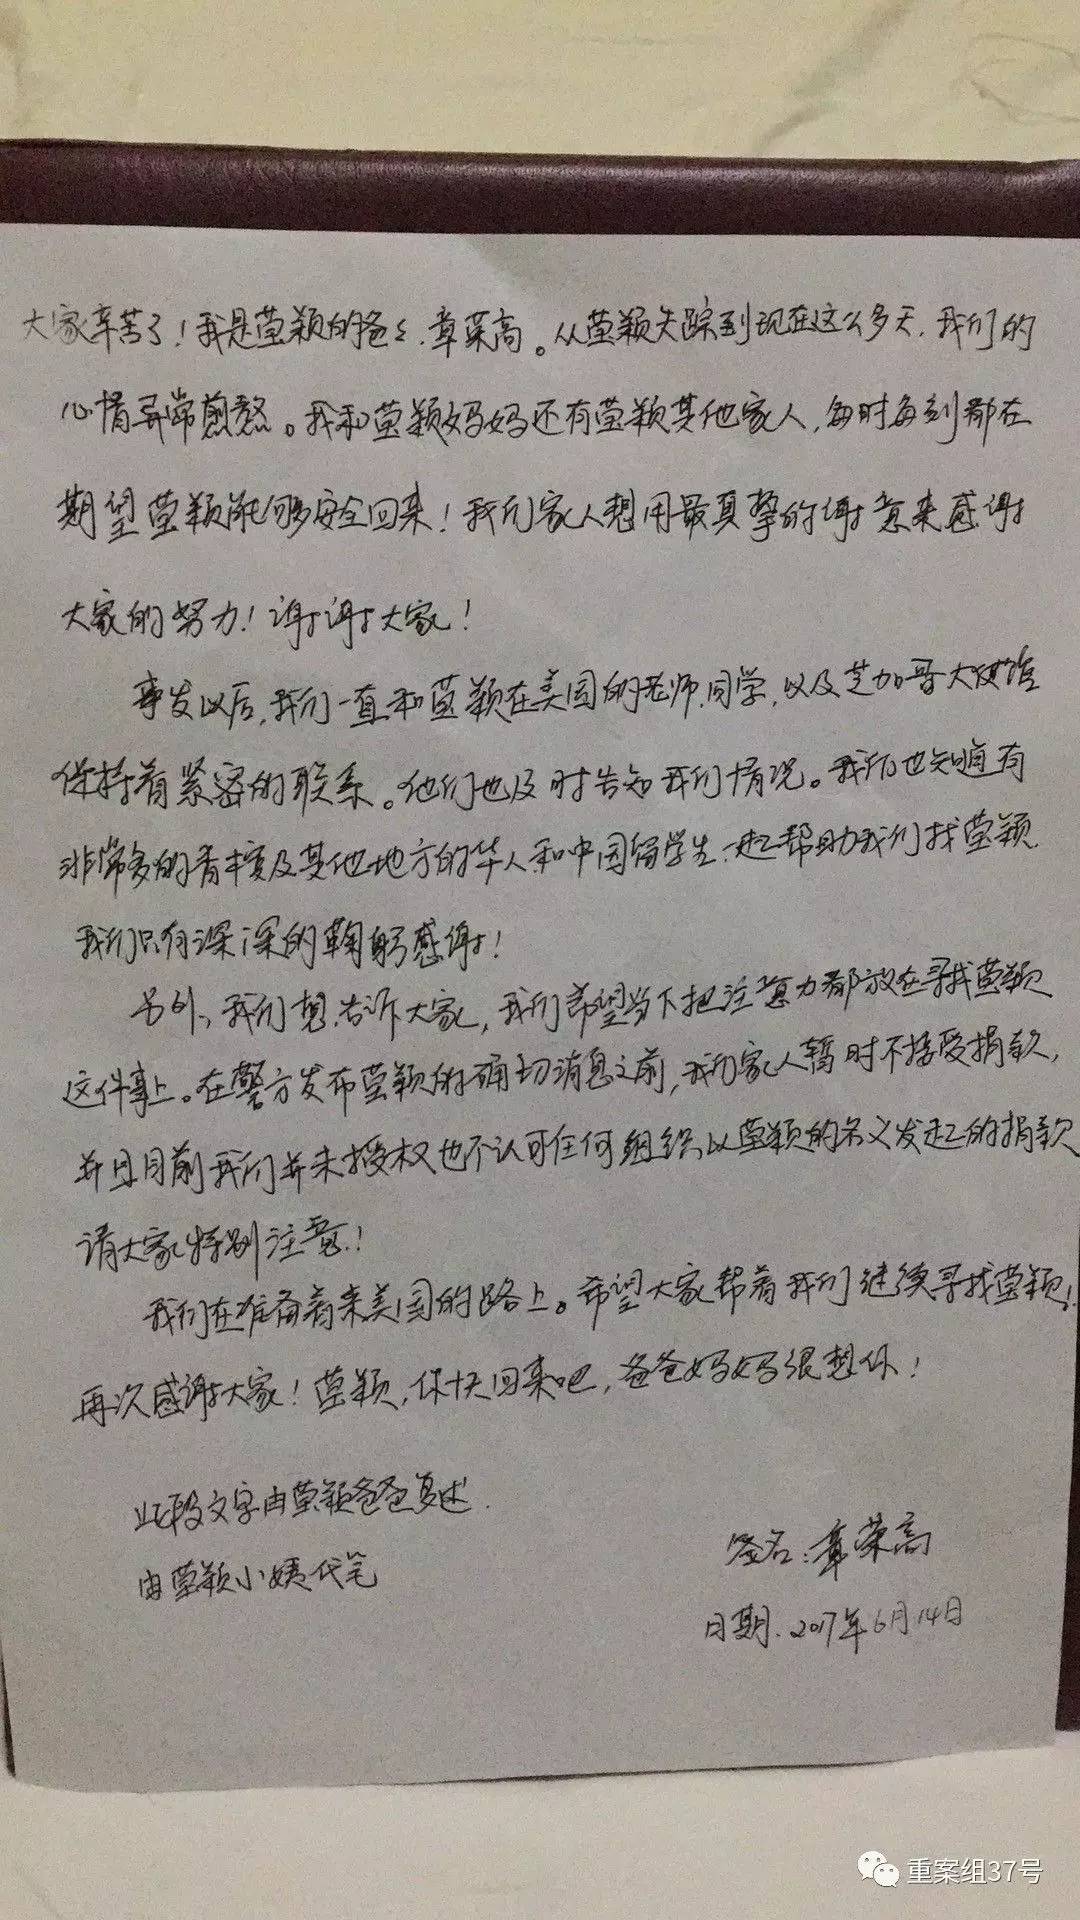 大家辛苦了！我是莹颖的爸爸,章荣高。从莹颖失踪到现在这么多天,我们的
心情异常煎熬。我和莹颖妈妈还有莹颖其他家人,每时每刻都在
期望莹颖能够安全回来！我们家人想用最真挚的谢意来感谢
大家的努力！谢谢大家！
事发以后,我们一直和莹颖在美国的老师,同学,以及芝加哥大使馆
保持着紧密的联系。他们也及时告知我们情况。我们也知道有
非常多的香槟及其他地方的华人和中国留学生一起帮助我们找莹颖.
我们只有深深的鞠躬感谢！
另外、我们想告诉大家,我们希望当下把注意力都放在寻找莹颖
这件事上。在警方发布莹颖的确切消息之前,我们家人暂时不接受捐款,
并且目前我们并未授权也不认可任何组织以莹颖的名义发起的捐款
请大家特别注意！
我们在准备着来美国的路上。希望大家帮着我们继续寻找莹颖！
再次感谢大家！莹颖,你快回来吧,爸爸妈妈很想你！
此段文字由莹颖爸爸复述.
由莹颖小姨代笔
签名:章荣高
日期.2017年6月14日
重案组37号